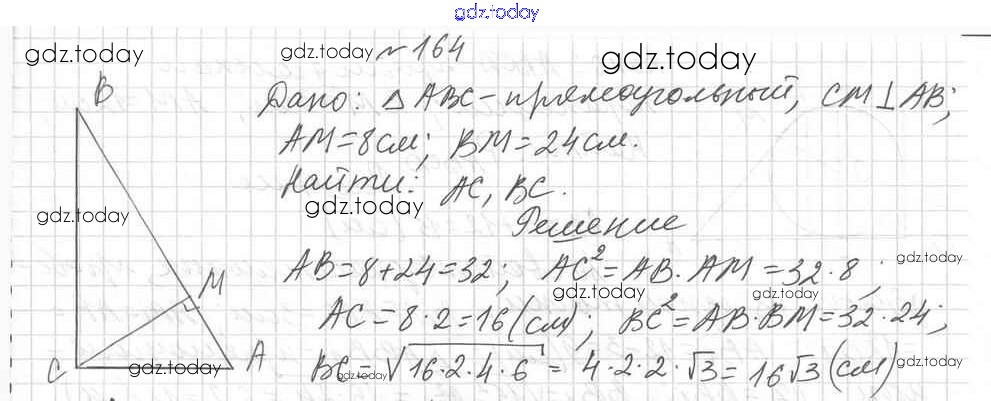 gdz.today
gdz.today gdz.today № 164 gdz.today
B
Дано: △ ABC - прямоугольный, CM ⊥ AB;
AM = 8 см; BM = 24 см.
Найти: AC, BC.
gdz.today gdz.today
Решение
AB = 8 + 24 = 32; AC² = AB · AM = 32 · 8;
gdz.today gdz.today gdz.today
M
AC = 8 · 2 = 16 (см); BC² = AB · BM = 32 · 24;
C A
BC = √16·2·4·6 = 4·2·2·√3 = 16√3 (см)
gdz.today gdz.today gdz.today